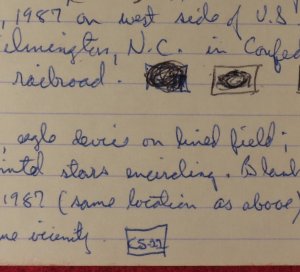 , 1987 on west side of U.S
ilmington, N.C. in Confed
railroad.
, eagle device on lined field;
inted stars encircling. Blank
1987 (same location as above)
me vicinity. CS-22